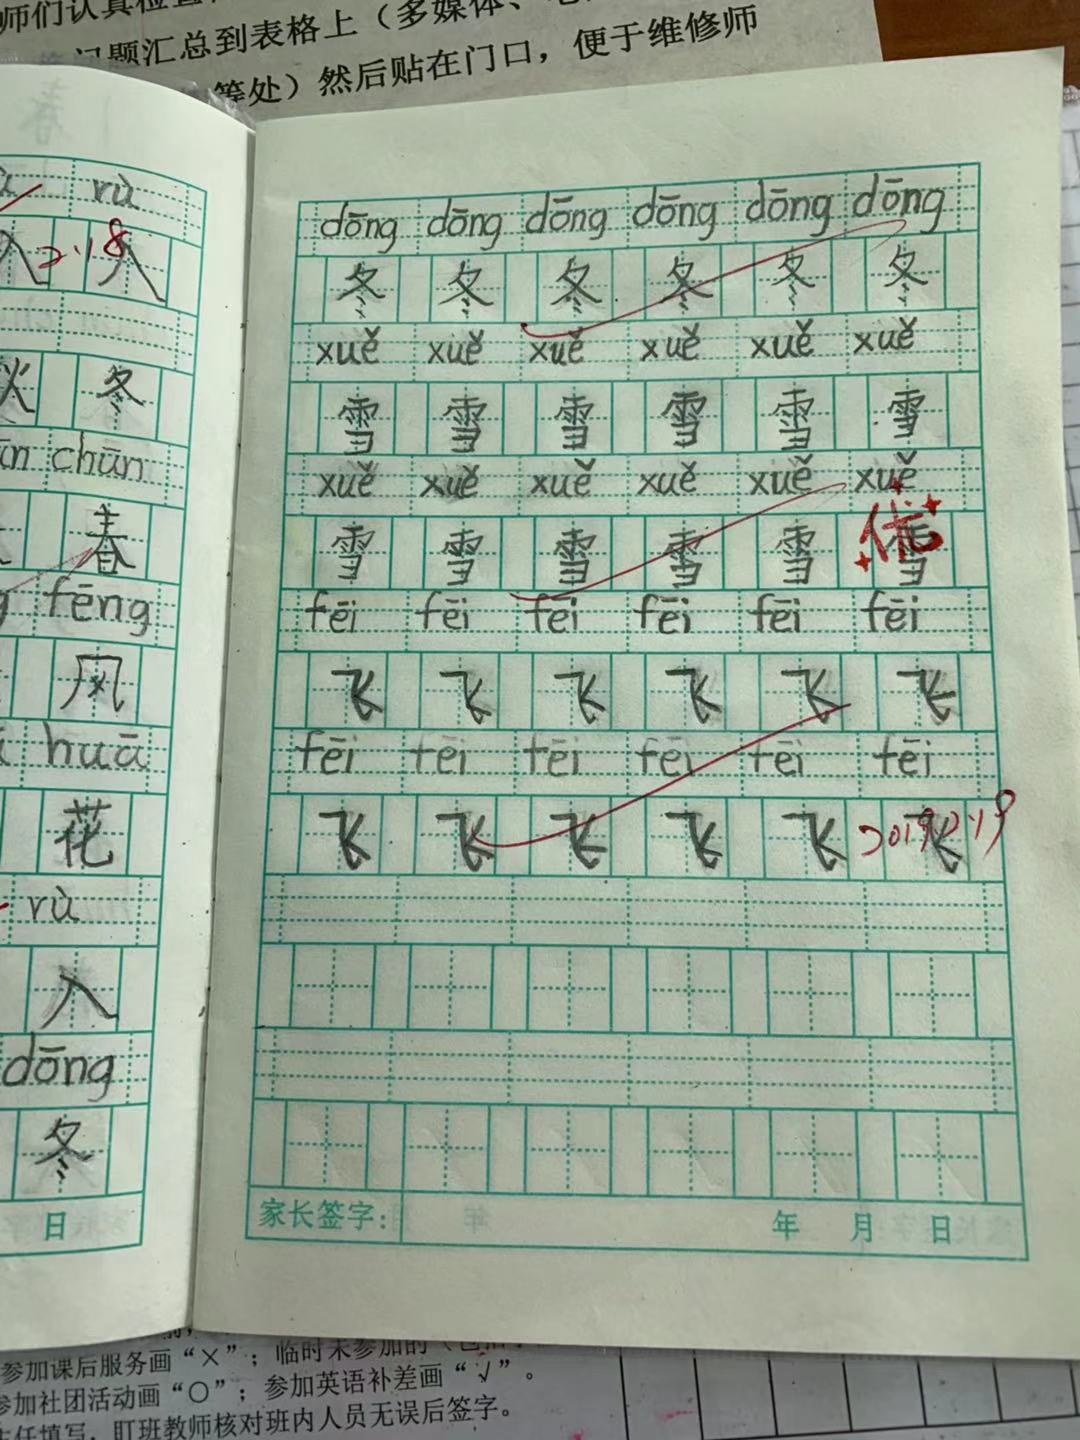 师们认真检查
问题汇总到表格上（多媒体、
等处）然后贴在门口，便于维修师
rù
入 2.18 入
冬
chūn
春
fēng
风
huā
花
rù
入
dōng
冬
日
dōng dōng dōng dōng dōng dōng
冬 冬 冬 冬 冬 冬
xuě xuě xuě xuě xuě xuě
雪 雪 雪 雪 雪 雪
xuě xuě xuě xuě xuě xuě
雪 雪 雪 雪 雪 雪
优
fēi fēi fēi fēi fēi fēi
飞 飞 飞 飞 飞 飞
fēi fēi fēi fēi fēi fēi
飞 飞 飞 飞 飞 飞
2019.2.19
家长签字： 年 月 日
参加课后服务画“×”；临时未参加的
参加社团活动画“○”；参加英语补差画“√”。
任填写，盯班教师核对班内人员无误后签字。